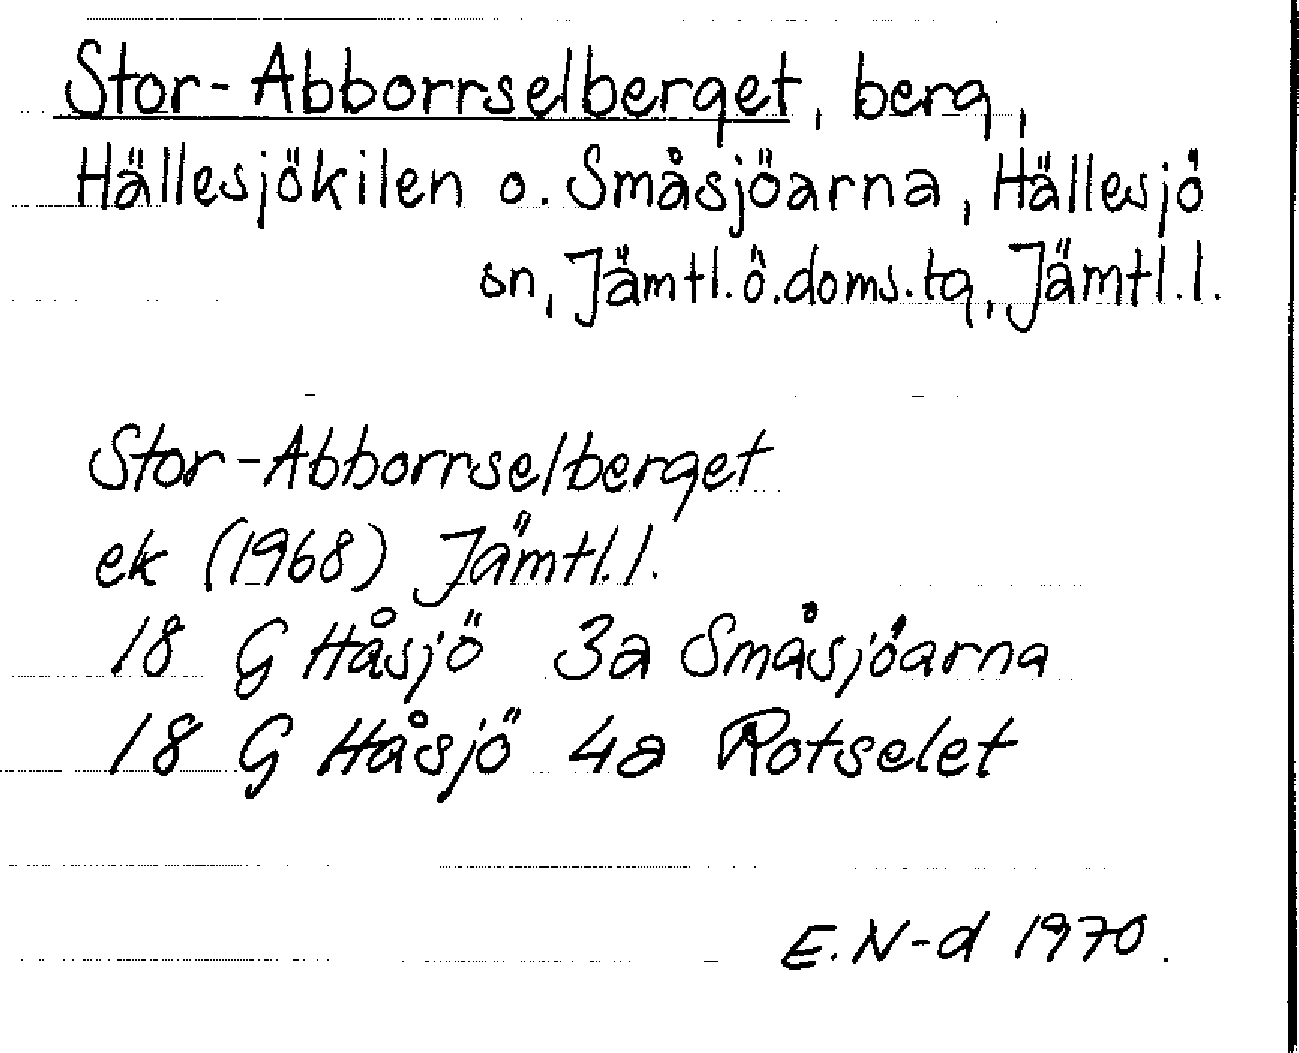 Stor-Abborrselberget, berg,
Hällesjökilen o. Småsjöarna, Hällesjö
sn, Jämtl.ö.doms.tg, Jämtl.l.
Stor-Abborrselberget
ek (1968) Jämtl.l.
18 G Håsjö 3a Småsjöarna
18 G Håsjö 4a Rotselet
E.N-d 1970.